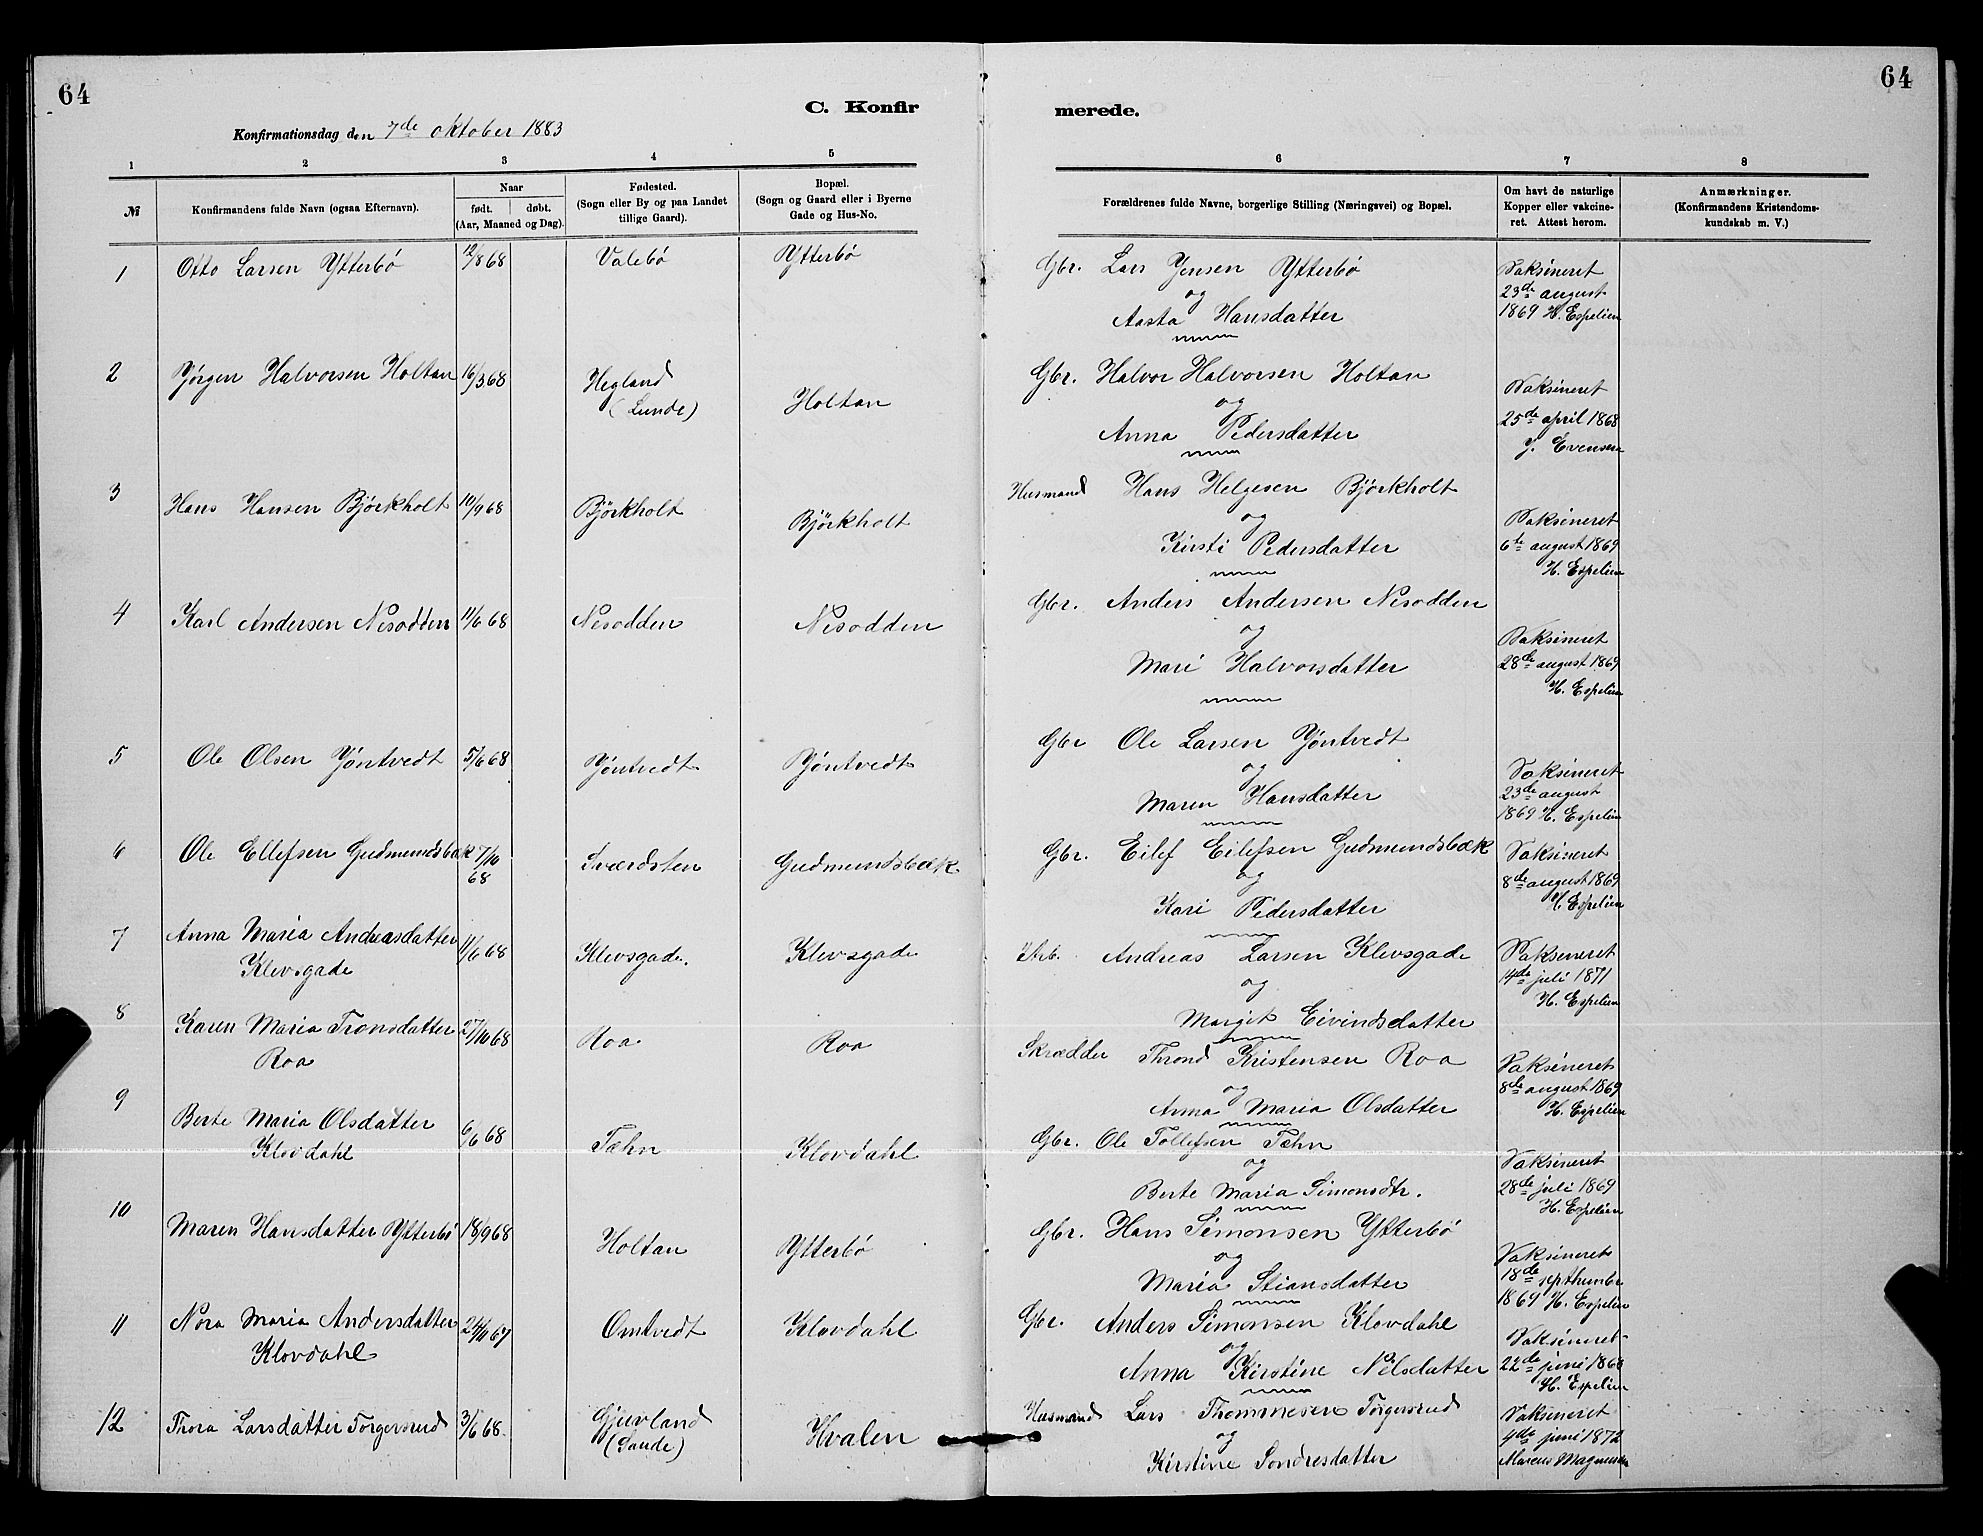 64
64
C. Konfir
merede.
Konfirmationsdag den 7de oktober 1883
1 2 3 4 5 6 7 8
№
Konfirmandens fulde Navn (ogsaa Efternavn).
Naar
født. døbt.
(Aar, Maaned og Dag).
Fødested.
(Sogn eller By og paa Landet
tillige Gaard).
Bopæl.
(Sogn og Gaard eller i Byerne
Gade og Hus-No.
Forældrenes fulde Navne, borgerlige Stilling (Næringsvei) og Bopæl.
Om havt de naturlige
Kopper eller vakcine-
ret. Attest herom.
Anmærkninger.
(Konfirmandens Kristendoms-
kundskab m. V.)
1 Otto Larsen Ytterbö 12/8 68 Valebö Ytterbö Gbr. Lars Jensen Ytterbö
og
Aasta Hansdatter
Vaksineret
23de august
1869 H. Espelien
2 Jörgen Halvorsen Holtan 16/3 68 Hegland
(Lunde)
Holtan
Gbr. Halvor Halvorsen Holtan
og
Anna Pedersdatter
Vaksineret
25de april 1868
J. Evensen
3 Hans Hansen Björkholt 10/9 68 Björkholt Björkholt Husmand Hans Helgesen Björkholt
og
Kirsti Pedersdatter
Vaksineret
6te august 1869
H. Espelien
4 Karl Andersen Nesodden 11/6 68 Nesodden Nesodden Gbr. Anders Andersen Nesodden
og
Mari Halvorsdatter
Vaksineret
28de august 1869
H. Espelien
5 Ole Olsen Jöntvedt 5/6 68 Jöntvedt Jöntvedt Gbr Ole Larsen Jöntvedt
og
Maren Hansdatter
Vaksineret
23de august
1869 H. Espelien
6 Ole Ellefsen Gudmundsbæk 7/10
68
Sværdsten Gudmundsbæk Gbr. Eilef Eilefsen Gudmundsbæk
og
Kari Pedersdatter
Vaksineret
8de august 1869
H. Espelien
7 Anna Maria Andreasdatter
Klevsgade
11/6 68 Klevsgade. Klevsgade Andreas Larsen Klevsgade
og
Margit Eivindsdatter
Vaksineret
14de juli 1871
H. Espelien
8 Karen Maria Tronsdatter
Roa
27/10 68 Roa Roa Skrædder Thrond Kristensen Roa
og
Anna Maria Olsdatter
Vaksineret
8de august 1869
H. Espelien
9 Berte Maria Olsdatter
Klovdahl
6/6 68 Tæhn Klovdahl Gbr. Ole Tollefsen Tæhn
og
Berte Maria Simonsdtr.
Vaksineret
28de juli 1869
H. Espelien
10 Maren Hansdatter Ytterbö 18/9 68 Holtan Ytterbö Gbr. Hans Simonsen Ytterbö
og
Maria Stiansdatter
Vaksineret
18de septhember
1869 H. Espelien
11 Nora Maria Andersdatter
Klovdahl
24/11 67 Omtvedt Klovdahl Gbr. Anders Simonsen Klovdahl
og
Anna Kirstine Nilsdatter
Vaksineret
22de juni 1868
H. Espelien
12 Thora Larsdatter Torgersrud 3/6 68. Gjuvland
(Sande)
Hvalen
Husmand Lars Thommesen Torgersrud
og
Kirstine Sondresdatter
Vaksineret
4de juni 1872
Marcus Magnusen